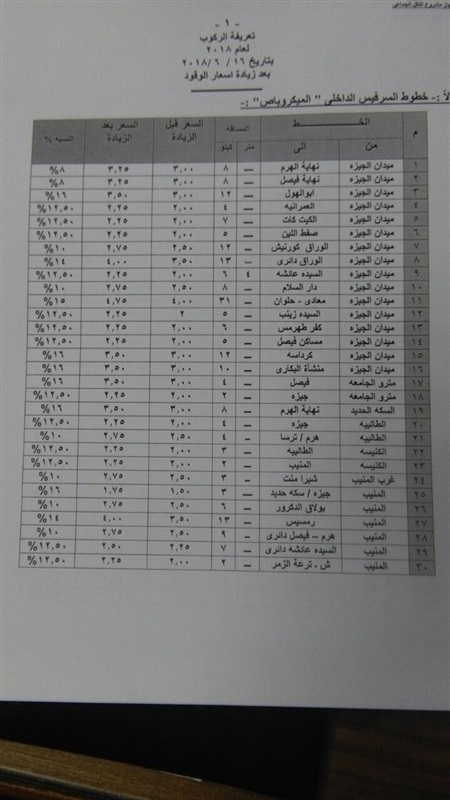 مشروع النقل الجماعى
- ١ -
تعريفة الركوب
لعام ٢٠١٨
بتاريخ ١٦ / ٦ / ٢٠١٨
بعد زيادة اسعار الوقود
خطوط السرفيس الداخلى " الميكروباص " :-
م الخط المسافه السعر قبل الزيادة السعر بعد الزيادة النسبه %
من الى كيلو متر
١ ميدان الجيزه نهاية الهرم ٨ ــ ٣,٠٠ ٣,٢٥ ٨%
٢ ميدان الجيزه نهاية فيصل ٨ ــ ٣,٠٠ ٣,٢٥ ٨%
٣ ميدان الجيزه ابوالهول ١٢ ــ ٣,٠٠ ٣,٥٠ ١٦%
٤ ميدان الجيزه العمرانيه ٤ ــ ٢,٠٠ ٢,٢٥ ١٢,٥٠%
٥ ميدان الجيزه الكيت كات ٧ ــ ٢,٠٠ ٢,٢٥ ١٢,٥٠%
٦ ميدان الجيزه صفط اللبن ٥ ــ ٢,٠٠ ٢,٢٥ ١٢,٥٠%
٧ ميدان الجيزه الوراق كورنيش ١٢ ــ ٢,٥٠ ٢,٧٥ ١٠%
٨ ميدان الجيزه الوراق دائرى ١٣ ــ ٣,٥٠ ٤,٠٠ ١٤%
٩ ميدان الجيزه السيده عائشه ٦ ٤ ٢,٠٠ ٢,٢٥ ١٢,٥٠%
١٠ ميدان الجيزه دار السلام ٨ ــ ٢,٥٠ ٢,٧٥ ١٠%
١١ ميدان الجيزه معادى - حلوان ٣١ ــ ٤,٠٠ ٤,٧٥ ١٥%
١٢ ميدان الجيزه السيده زينب ٥ ــ ٢ ٢,٢٥ ١٢,٥٠%
١٣ ميدان الجيزه كفر طهرمس ٦ ــ ٢,٠٠ ٢,٢٥ ١٢,٥٠%
١٤ ميدان الجيزه مساكن فيصل ٥ ــ ٢,٠٠ ٢,٢٥ ١٢,٥٠%
١٥ ميدان الجيزه كرداسه ١٢ ــ ٣,٠٠ ٣,٥٠ ١٦%
١٦ ميدان الجيزه منشأة البكارى ١٠ ــ ٣,٠٠ ٣,٥٠ ١٦%
١٧ مترو الجامعه فيصل ٤ ــ ٣,٠٠ ٣,٥٠ ١٦%
١٨ مترو الجامعه جيزه ٢ ــ ٢,٠٠ ٢,٢٥ ١٢,٥٠%
١٩ السكه الحديد نهاية الهرم ٨ ــ ٣,٠٠ ٣,٥٠ ١٦%
٢٠ الطالبيه جيزه ٤ ــ ٢,٠٠ ٢,٢٥ ١٢,٥٠%
٢١ الطالبيه هرم / ترسا ٤ - ٢,٥٠ ٢,٧٥ ١٠%
٢٢ الكنيسه الطالبيه ٣ ــ ٢,٠٠ ٢,٢٥ ١٢,٥٠%
٢٣ الكنيسه المنيب ٢ ــ ٢,٠٠ ٢,٢٥ ١٢,٥٠%
٢٤ غرب المنيب شبرا منت ٣ - ٢,٥٠ ٢,٧٥ ١٠%
٢٥ المنيب جيزه / سكه حديد ٣ ــ ١,٥٠ ١,٧٥ ١٦%
٢٦ المنيب بولاق الدكرور ٦ ــ ٢,٥٠ ٢,٧٥ ١٠%
٢٧ المنيب رمسيس ١٣ ــ ٣,٥٠ ٤,٠٠ ١٤%
٢٨ المنيب هرم – فيصل دائرى ٩ - ٢,٥٠ ٢,٧٥ ١٠%
٢٩ المنيب السيده عائشه دائرى ٧ ــ ٢,٢٥ ٢,٥٠ ١٢,٥٠%
٣٠ المنيب ش - ترعة الزمر ٢ ــ ٢,٠٠ ٢,٢٥ ١٢,٥٠%